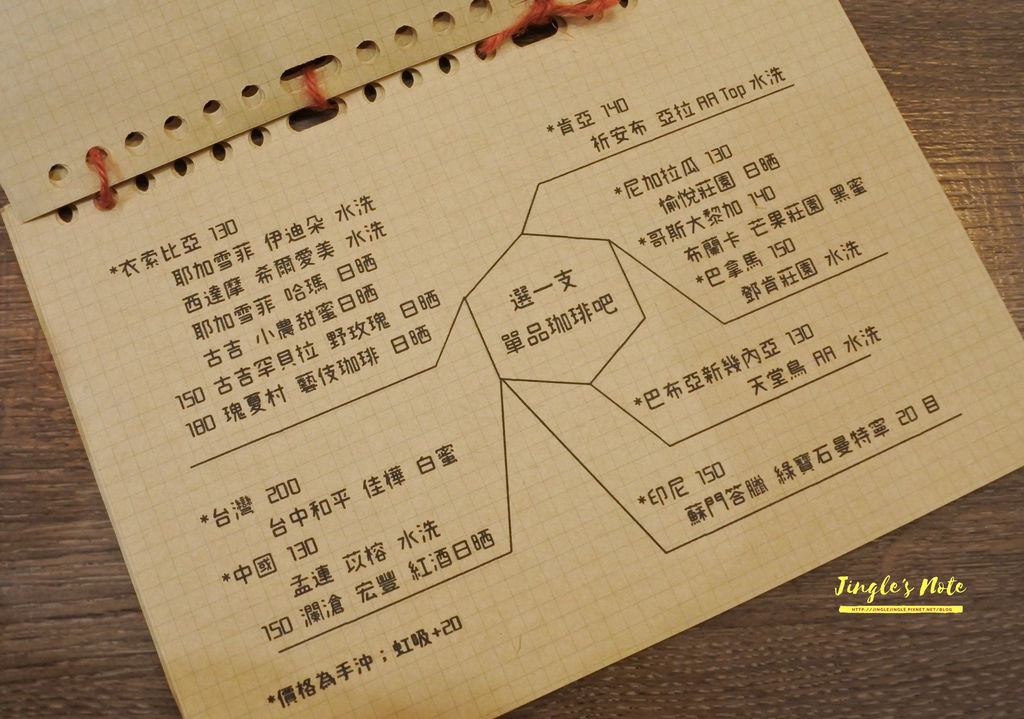 *肯亞 140
祈安布 亞拉 AA Top 水洗
*尼加拉瓜 130
愉悅莊園 日晒
*哥斯大黎加 140
布蘭卡 芒果莊園 黑蜜
*巴拿馬 150
鄧肯莊園 水洗
*衣索比亞 130
耶加雪菲 伊迪朵 水洗
西達摩 希爾愛美 水洗
耶加雪菲 哈瑪 日晒
古吉 小農甜蜜日晒
150 古吉罕貝拉 野玫瑰 日晒
180 瑰夏村 藝伎珈琲 日晒
選一支
單品珈琲吧
*巴布亞新幾內亞 130
天堂鳥 AA 水洗
*印尼 150
蘇門答臘 綠寶石曼特寧 20 目
*台灣 200
台中和平 佳樺 白蜜
*中國 130
孟連 苡榕 水洗
150 瀾滄 宏豐 紅酒日晒
*價格為手沖；虹吸+20
Jingle's Note
HTTP://JINGLEJINGLE.PIXNET.NET/BLOG